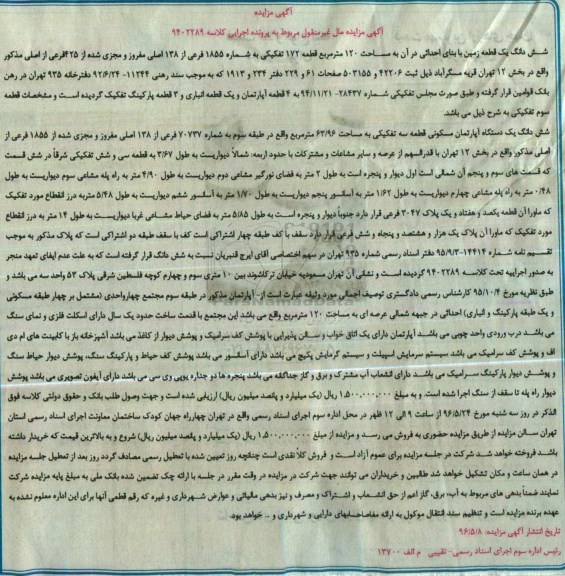 آگهی مزایده
آگهی مزایده مال غیرمنقول مربوط به پرونده اجرایی کلاسه ۹۴۰۲۲۸۹
شش دانگ یک قطعه زمین با بنای احداثی در آن به مساحت ۱۲۰ مترمربع قطعه ۱۷۲ تفکیکی به شماره ۱۸۵۵ فرعی از ۱۳۸ اصلی مفروز و مجزی شده از ۴۲۵فرعی از اصلی مذکور
واقع در بخش ۱۲ تهران قریه مسگرآباد ذیل ثبت ۴۲۲۰۶ و ۵۰۳۱۵۵ صفحات ۶۱ و ۲۲۹ دفتر ۲۳۴ و ۱۹۱۳ که به موجب سند رهنی ۱۱۲۴۴- ۹۲/۶/۲۴ دفترخانه ۹۳۵ تهران در رهن
بانک قوامین قرار گرفته و طبق صورت مجلس تفکیکی شماره ۲۸۴۳۷- ۹۴/۱۱/۲۱ به ۴ قطعه آپارتمان و یک قطعه انباری و ۳ قطعه پارکینگ تفکیک گردیده است و مشخصات قطعه
سوم تفکیکی به شرح ذیل می باشد.
شش دانگ یک دستگاه آپارتمان مسکونی قطعه سه تفکیکی به مساحت ۶۳/۹۶ مترمربع واقع در طبقه سوم به شماره ۷۰۷۳۷ فرعی از ۱۳۸ اصلی مفروز و مجزی شده از ۱۸۵۵ فرعی از
اصلی مذکور واقع در بخش ۱۲ تهران با قدرالسهم از عرصه و سایر مشاعات و مشترکات با حدود اربعه: شمالاً دیواریست به طول ۳/۶۷ به قطعه سی و شش تفکیکی شرقاً در شش قسمت
که قسمت های سوم و پنجم آن شمالی است اول دیوار و پنجره است به طول ۲ متر به فضای نورگیر مشاعی دوم دیواریست به طول ۴/۹۰ متر به راه پله مشاعی سوم دیواریست به طول
۰/۴۸ متر به راه پله مشاعی چهارم دیواریست به طول ۱/۶۲ متر به آسانور پنجم دیواریست به طول ۱/۷۰ متر به آسانسور ششم دیواریست به طول ۵/۴۸ متربه درز انقطاع مورد تفکیک
که ماورا آن قطعه یکصد و هفتاد و یک پلاک ۳۰۴۷ فرعی قرار دارد جنوباً دیوار و پنجره است به طول ۵/۸۵ متر به فضای حیاط مشاعی غربا دیواریست به طول ۱۴ متر به درز انقطاع
مورد تفکیک که ماورا آن پلاک یک هزار و هشتصد و پنجاه و شش فرعی قرار دارد سقف با کف طبقه چهار اشتراکی است کف با سقف طبقه دو اشتراکی است که پلاک مذکور به موجب
تقسیم نامه شماره ۱۴۴۱۴-۹۵/۹/۳ دفتر اسناد رسمی شماره ۹۳۵ تهران در سهم اختصاصی آقای ایرج قنبریان نسبت به شش دانگ قرار گرفته است که به علت عدم ایفای تعهد منجر
به صدور اجراییه تحت کلاسه ۹۴۰۲۲۸۹ گردیده است و نشانی آن تهران مسعودیه خیابان ترکاشوند بین ۱۰ متری سوم و چهارم کوچه فلسطین شرقی پلاک ۵۳ واحد سه می باشد و
طبق نظریه مورخ ۹۵/۱۰/۴ کارشناس رسمی دادگستری توصیف اجمالی مورد وثیقه عبارت است از- آپارتمان مذکور در طبقه سوم مجتمع چهارواحدی (مشتمل بر چهار طبقه مسکونی
و یک طبقه پارکینگ و انباری) احداثی در جبهه شمالی عرصه ای به مساحت ۱۲۰ مترمربع واقع می باشد این مجتمع با قدمت ساخت حدود یک سال دارای اسکلت فلزی و نمای سنگ
می باشد درب ورودی واحد چوبی می باشد آپارتمان دارای یک اتاق خواب و سالن پذیرایی با پوشش کف سرامیک و پوشش دیوار از کاغذ می باشد آشپزخانه باز با کابینت های ام دی
اف و پوشش کف سرامیک می باشد سیستم سرمایش اسپیلت و سیستم گرمایش پکیج می باشد دارای آسانسور می باشد پوشش کف حیاط و پارکینگ سنگ، پوشش دیوار حیاط سنگ
و پوشش دیوار پارکینگ سرامیک می باشد دارای انشعاب آب مشترک و برق و گاز جداگانه می باشد پنجره ها دو جداره یوپی وی سی می باشد دارای آیفون تصویری می باشد پوشش
دیوار راه پله تا سقف از سنگ اجرا شده است. و به مبلغ ۱.۵۰۰.۰۰۰.۰۰۰ ریال (یک میلیارد و پانصد میلیون ریال) ارزیابی شده است و جهت وصول طلب بانک و حقوق دولتی کلاسه فوق
الذکر در روز سه شنبه مورخ ۹۶/۵/۲۴ از ساعت ۹ الی ۱۲ ظهر در محل اداره سوم اجرای اسناد رسمی واقع در تهران چهارراه جهان کودک ساختمان معاونت اجرای اسناد رسمی استان
تهران سالن مزایده از طریق مزایده حضوری به فروش می رسد و مزایده از مبلغ ۱.۵۰۰.۰۰۰.۰۰۰ ریال (یک میلیارد و پانصد میلیون ریال) شروع و به بالاترین قیمت که خریدار داشته
باشد فروخته خواهد شد شرکت در جلسه مزایده برای عموم آزاد است و فروش کلاً نقدی است چنانچه روز تعیین شده با تعطیل رسمی مصادف گردد روز بعد از تعطیل جلسه مزایده
در همان ساعت و مکان تشکیل خواهد شد طالبین و خریداران می توانند جهت شرکت در مزایده در وقت مقرر در جلسه با ارائه چک تضمین شده بانک ملی به مبلغ پایه مزایده شرکت
نمایند ضمناً بدهی های مربوط به آب، برق، گاز اعم از حق انشعاب و اشتراک و مصرف و نیز بدهی مالیاتی و عوارض شهرداری و غیره که رقم قطعی آنها برای این اداره معلوم نشده به
عهده برنده مزایده است و تنظیم سند انتقال موکول به ارائه مفاصاحسابهای دارایی و شهرداری و ... خواهد بود.
تاریخ انتشار آگهی مزایده: ۹۶/۵/۸
رئیس اداره سوم اجرای اسناد رسمی- نقیبی م الف ۱۳۷۰۰